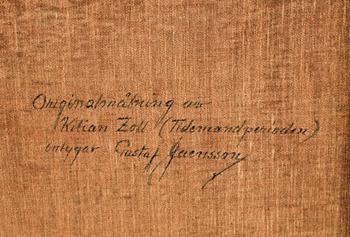 Originalmålning av
Kilian Zoll (Tidemandperioden)
intygar Gustaf Jaensson